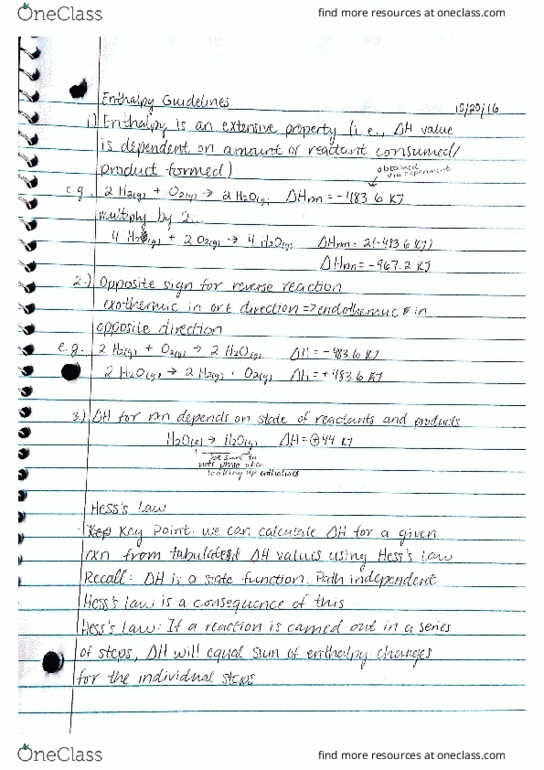 OneClass
find more resources at oneclass.com
Enthalpy Guidelines
10/20/16
1.) Enthalpy is an extensive property (i.e., ΔH value
is dependent on amount of reactant consumed/
product formed)
obtained
via experiment
e.g. 2 H₂(g) + O₂(g) → 2 H₂O(g) ΔHrxn = -483.6 KJ
multiply by 2...
4 H₂(g) + 2 O₂(g) → 4 H₂O(g) ΔHrxn = 2(-483.6 KJ)
ΔHrxn = -967.2 KJ
2.) Opposite sign for reverse reaction
exothermic in one direction => endothermic in
opposite direction
e.g. 2 H₂(g) + O₂(g) → 2 H₂O(g) ΔH = -483.6 KJ
2 H₂O(g) → 2 H₂(g) + O₂(g) ΔH = +483.6 KJ
3.) ΔH for rxn depends on state of reactants and products
H₂O(l) → H₂O(g) ΔH = +44 KJ
be sure to
note phase when
looking up enthalpies
Hess's Law
Key Point: we can calculate ΔH for a given
rxn from tabulated ΔH values using Hess's Law
Recall: ΔH is a state function. Path independent
Hess's law is a consequence of this
Hess's law: If a reaction is carried out in a series
of steps, ΔH will equal sum of enthalpy changes
for the individual steps
OneClass
find more resources at oneclass.com